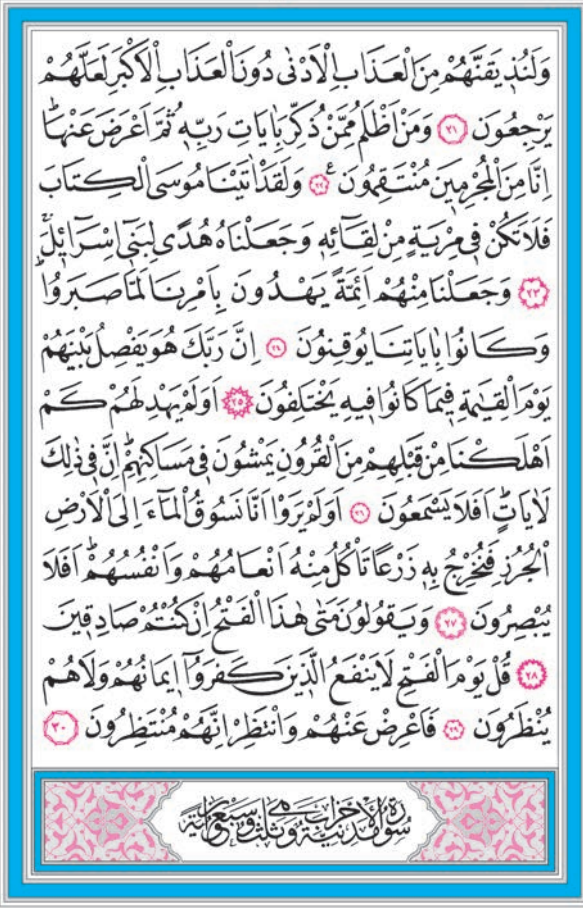 وَلَنُذ۪يقَنَّهُمْ مِنَ الْعَذَابِ الْاَدْنٰى دُونَ الْعَذَابِ الْاَكْبَرِ لَعَلَّهُمْ
يَرْجِعُونَ ﴿٢١﴾ وَمَنْ اَظْلَمُ مِمَّنْ ذُكِّرَ بِاٰيَاتِ رَبِّه۪ ثُمَّ اَعْرَضَ عَنْهَاۜ
اِنَّا مِنَ الْمُجْرِم۪ينَ مُنْتَقِمُونَ۟ ﴿٢٢﴾ وَلَقَدْ اٰتَيْنَا مُوسَى الْكِتَابَ
فَلَا تَكُنْ ف۪ي مِرْيَةٍ مِنْ لِقَٓائِه۪ وَجَعَلْنَاهُ هُدًى لِبَن۪ٓي اِسْرَٓائ۪لَۚ
﴿٢٣﴾ وَجَعَلْنَا مِنْهُمْ اَئِمَّةً يَهْدُونَ بِاَمْرِنَا لَمَّا صَبَرُواۜ
وَكَانُوا بِاٰيَاتِنَا يُوقِنُونَ ﴿٢٤﴾ اِنَّ رَبَّكَ هُوَ يَفْصِلُ بَيْنَهُمْ
يَوْمَ الْقِيٰمَةِ ف۪يمَا كَانُوا ف۪يهِ يَخْتَلِفُونَ ﴿٢٥﴾ اَوَلَمْ يَهْدِ لَهُمْ كَمْ
اَهْلَكْنَا مِنْ قَبْلِهِمْ مِنَ الْقُرُونِ يَمْشُونَ ف۪ي مَسَاكِنِهِمْۜ اِنَّ ف۪ي ذٰلِكَ
لَاٰيَاتٍۜ اَفَلَا يَسْمَعُونَ ﴿٢٦﴾ اَوَلَمْ يَرَوْا اَنَّا نَسُوقُ الْمَٓاءَ اِلَى الْاَرْضِ
الْجُرُزِ فَنُخْرِجُ بِه۪ زَرْعًا تَأْكُلُ مِنْهُ اَنْعَامُهُمْ وَاَنْفُسُهُمْۜ اَفَلَا
يُبْصِرُونَ ﴿٢٧﴾ وَيَقُولُونَ مَتٰى هٰذَا الْفَتْحُ اِنْ كُنْتُمْ صَادِق۪ينَ
﴿٢٨﴾ قُلْ يَوْمَ الْفَتْحِ لَا يَنْفَعُ الَّذ۪ينَ كَفَرُٓوا ا۪يمَانُهُمْ وَلَا هُمْ
يُنْظَرُونَ ﴿٢٩﴾ فَاَعْرِضْ عَنْهُمْ وَانْتَظِرْ اِنَّهُمْ مُنْتَظِرُونَ ﴿٣٠﴾
سُورَةُ الْاَحْزَابِ مَدَنِيَّةٌ وَهِيَ ثَلٰثٌ وَسَبْعُونَ اٰيَةً